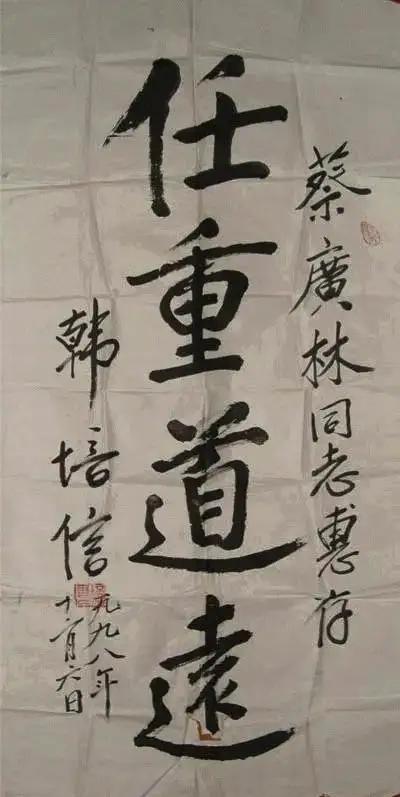 蔡廣林同志惠存
任重道遠
韩培信
一九九八年
十一月六日